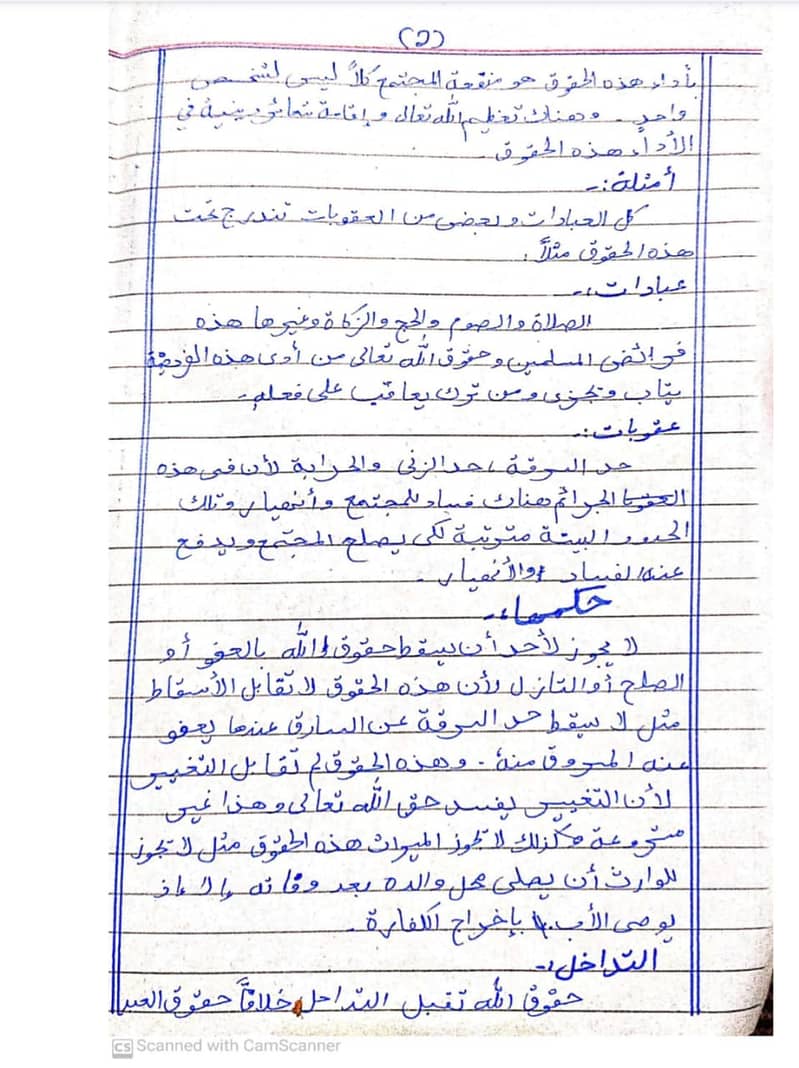 (2)
بأداء هذه الحقوق هو منفعة المجتمع كلاً ليس لشخص
واحد. وهناك تعظيم الله تعالى وإقامة شعائر دينية في
الأداء هذه الحقوق.
أمثلة:-
كل العبادات وبعض من العقوبات تندرج تحت
هذه الحقوق مثلاً.
عبادات:-
الصلاة والصوم والحج والزكاة وغيرها هذه
فرائض المسلمين وحقوق الله تعالى من أدى هذه الفريضة
يثاب ويجزى ومن ترك يعاقب على فعله.
عقوبات:-
حد السرقة، حد الزنى والحرابة لأن في هذه
الجرائم هناك فساد للمجتمع وأنهيار وتلك
الحدود البيئة مترتبة لكي يصلح المجتمع ويدفع
عنه الفساد والأنهيار.
حكمها:-
لا يجوز لأحد أن يسقط حقوق الله بالعفو أو
الصلح أو التنازل لأن هذه الحقوق لا تقابل الأسقاط
مثل لا سيقط حد السرقة عن السارق عندما يعفو
عنه المسروق منه. وهذه الحقوق لم تقابل التغيير
لأن التغيير يفسد حق الله تعالى وهذا غير
مشروعة كذلك لا تجوز الميراث هذه الحقوق مثل لا تجوز
للوارث أن يصلى محل والده بعد وفاته إلا إذ
يوصى الأب بإخراج الكفارة.
التداخل:-
حقوق الله تقبل التداحل خلافاً حقوق العبد
CS Scanned with CamScanner